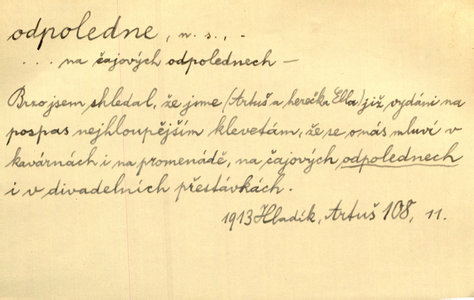 odpoledne, n. s., -
... na čajových odpolednech —
Brzo jsem shledal, že jsme (Artuš a herečka Ella) již vydáni na
pospas nejhloupějším klevetám, že se o nás mluví v
kavárnách i na promenádě, na čajových odpolednech
i v divadelních přestávkách.
1913 Hladík, Artuš 108, 11.